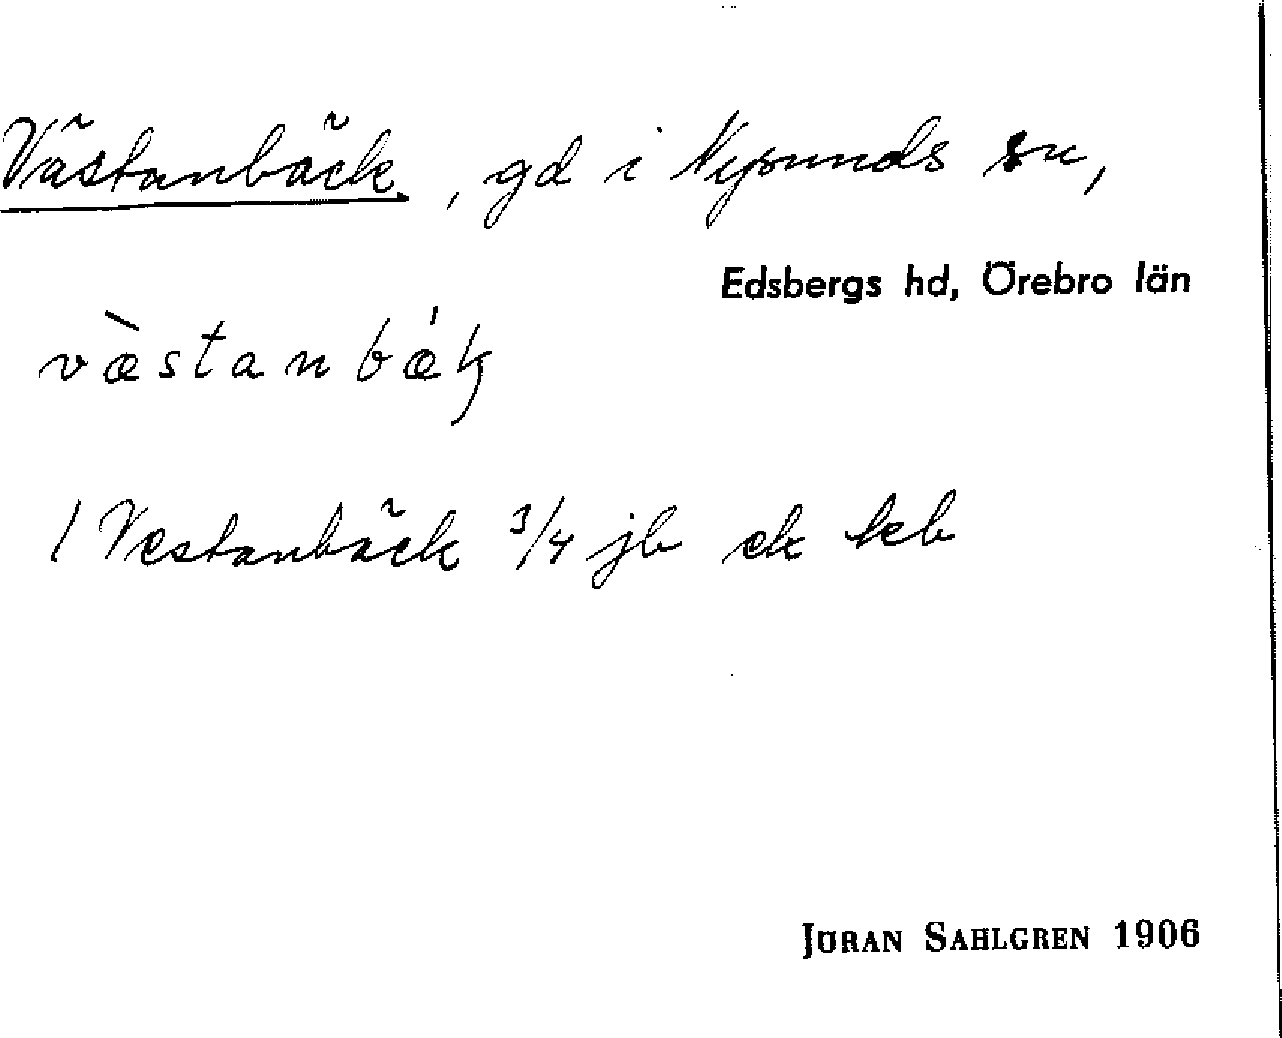 Västanbäck, gd i Nysunds sn,
Edsbergs hd, Örebro län
væ̀stanbǽk
1 Vestanbäck 3/4 jb ek keb
JÖRAN SAHLGREN 1906